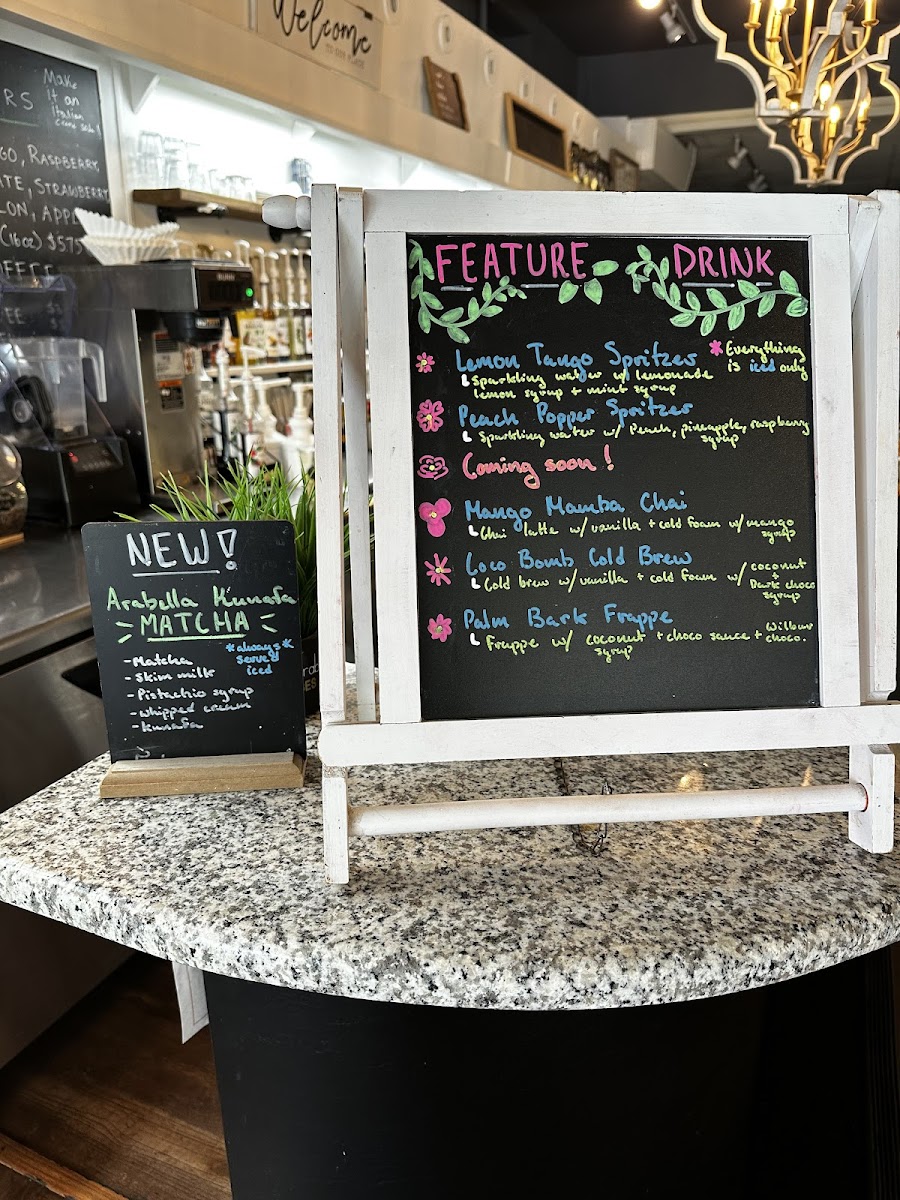 Welcome
TO OUR PLACE
Make
it an
Italian
RS
RASPBERRY,
STRAWBERRY
(16oz) $5.75
BUNN
FEATURE DRINK
Lemon Tango Spritzer
*Everything
is iced only
Sparkling water w/ lemonade
lemon syrup + mint syrup
Peach Popper Spritzer
Sparkling water w/ Peach, pineapple, raspberry
syrup
Coming soon!
Mango Mamba Chai
Chai latte w/ vanilla + cold foam w/ mango
syrup
Loco Bomb Cold Brew
Cold brew w/ vanilla + cold foam w/ coconut
+
Dark choco
syrup
Palm Bark Frappe
Frappe w/ coconut + choco sauce + choco.
syrup
NEW!
Arabella Kunafa
MATCHA
*always*
served
iced
- Matcha
- skim milk
- Pistachio syrup
- whipped cream
- kunafa